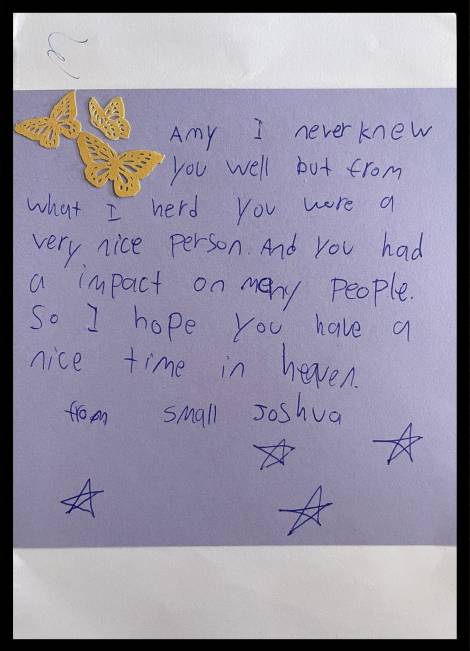 Amy I never knew
you well but from
what I herd you were a
very nice person. And you had
a impact on many people.
So I hope you have a
nice time in heaven.
from small Joshua